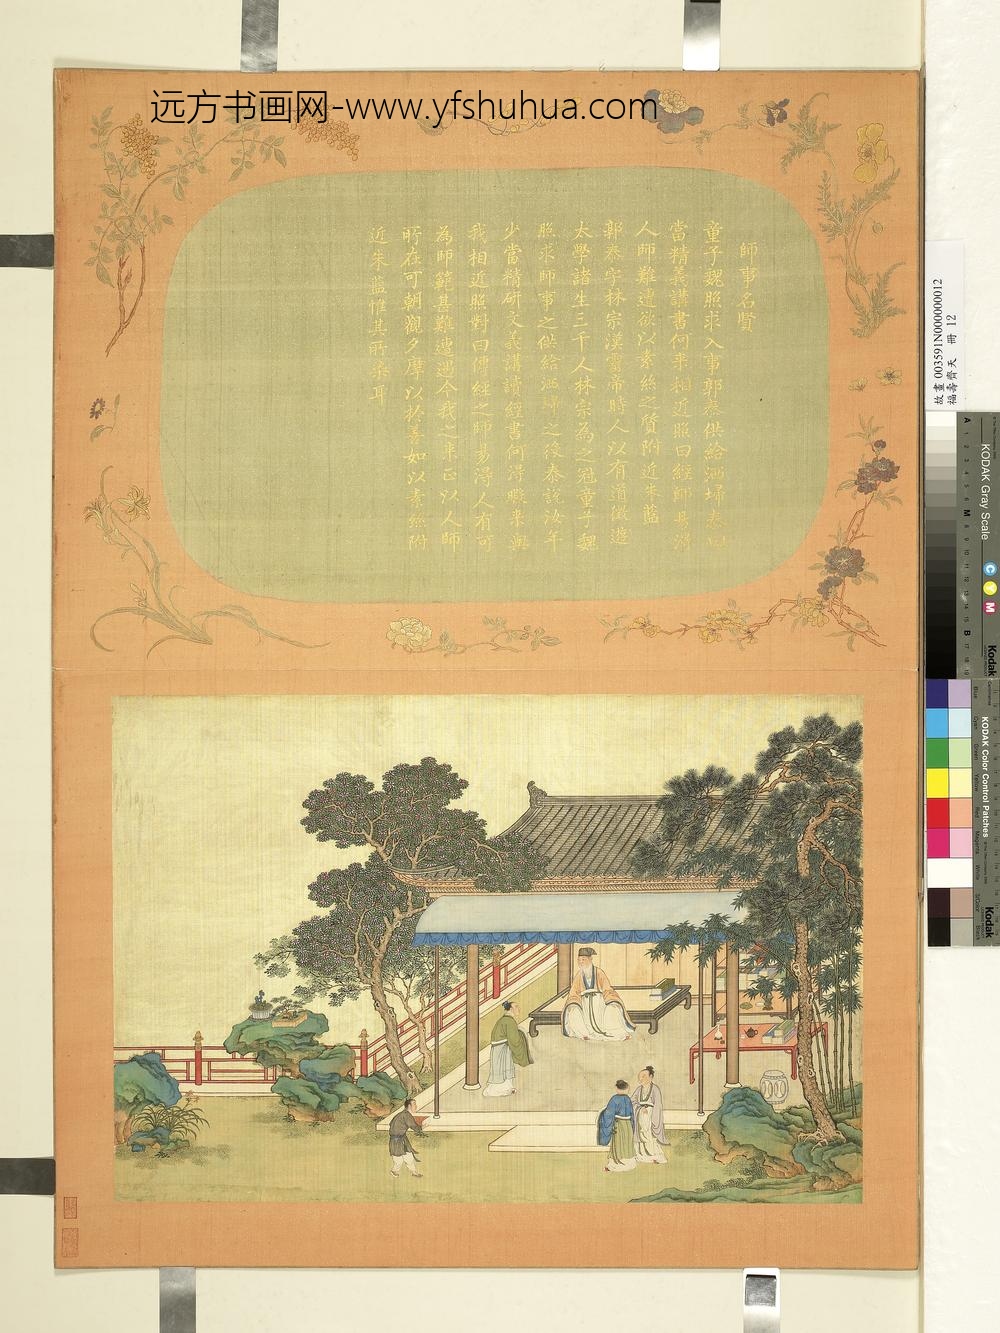 远方书画网-www.yfshuhua.com
師事名賢
童子魏照求入事郭泰供給洒埽泰曰
當精義講書何來相近照曰經師易得
人師難遭欲以素絲之質附近朱藍
郭泰字林宗漢靈帝時人以有道徵遊
太學諸生三千人林宗為之冠童子魏
照求師事之供給洒埽之後泰設汝年
少當精研文義講讀經書何得暇來與
我相近照對曰傳經之師易得人有可
為師範甚難遭遇今我之來正以人師
所在可朝觀夕摩以於善如以素絲附
近朱藍惟其所染耳
故畫 003591N000000012
福壽齊天 冊 12
KODAK Gray Scale
C
Y
M
Kodak
A
M
B
KODAK Color Control Patches
Blue
Cyan
Green
Yellow
Red
Magenta
White
3/Color
Black
Kodak